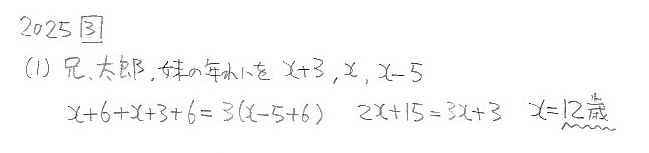 2025 3
(1) 兄、太郎、妹の年れいを x+3, x, x-5
x+6+x+3+6=3(x-5+6) 2x+15=3x+3 x=12歳